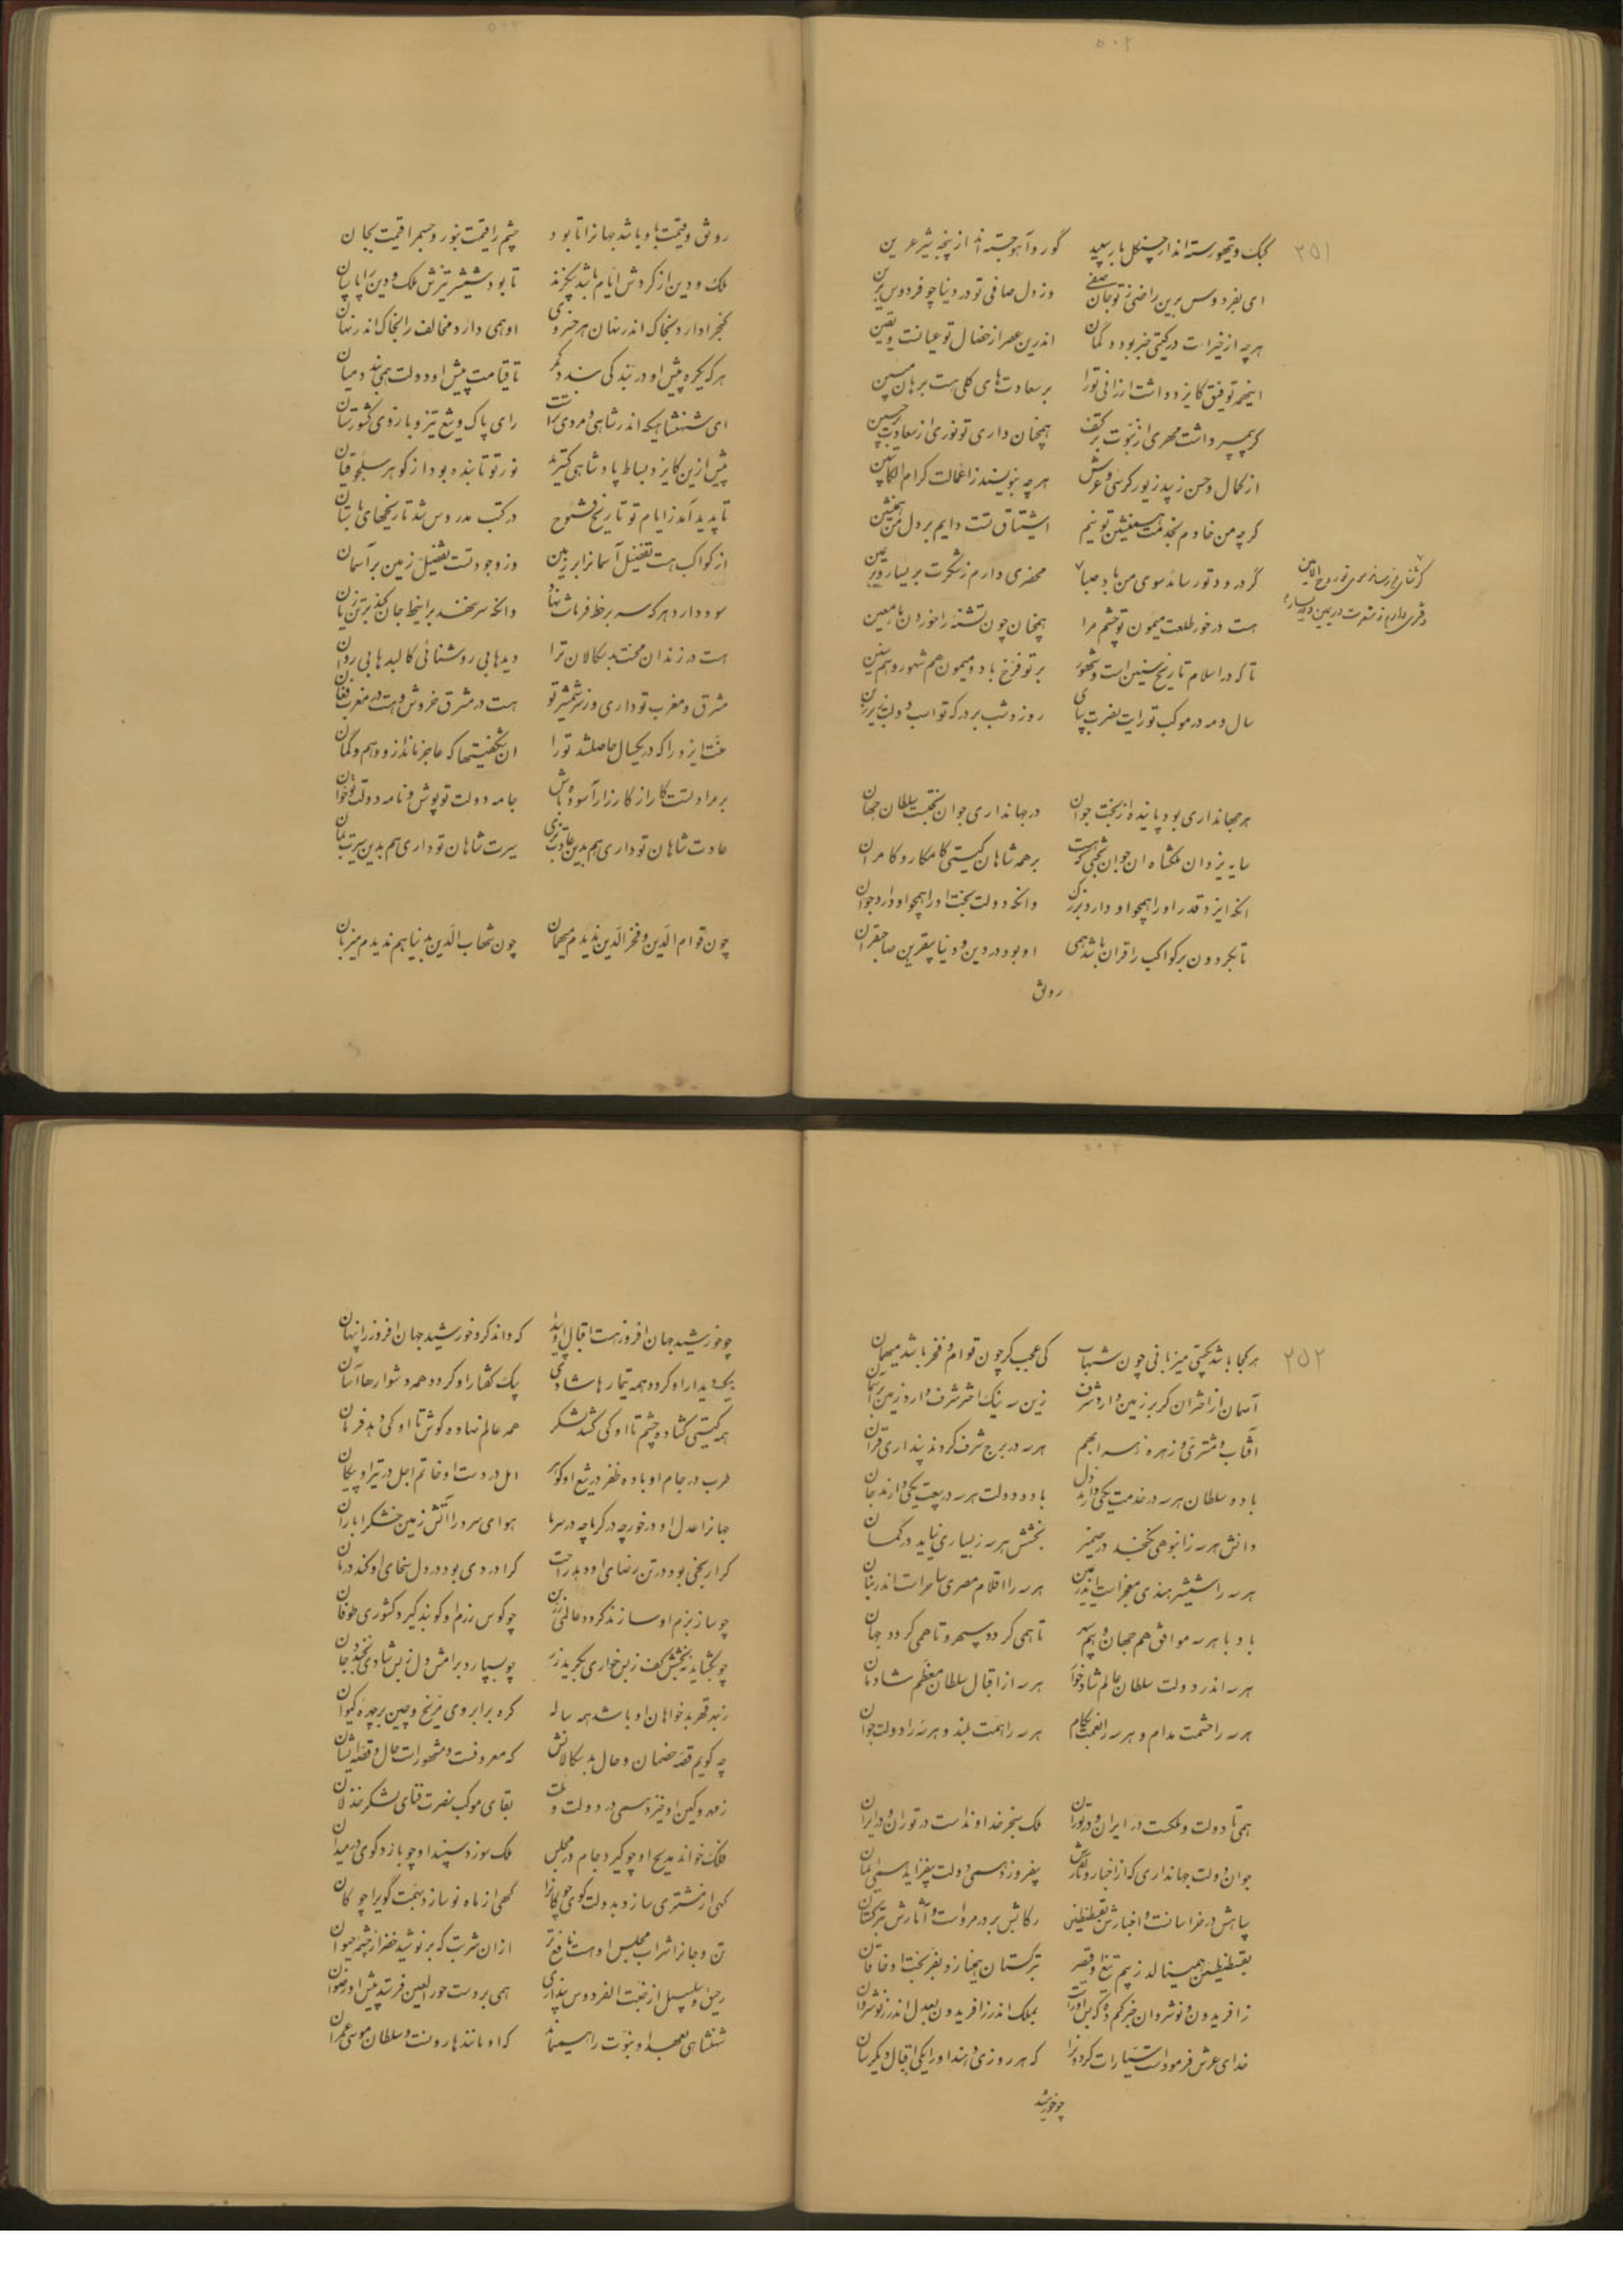 ۵۰۲
۲۵۱
کبک و تیهو رسته‌اند از چنگل باز سپید گور و آهو جسته‌اند از پنجه شیر عرین
ای بفردوس برین راضی ز تو جان صفی وز دل صافی تو در دنیا چو فردوس برین
هرچه از خیرات در گیتی خبر بود و گمان اندرین عصر از خصال تو عیانست و یقین
اینهمه توفیق کایزد داشت ارزانی تو را بر سعادتهای کلی هست برهان مبین
گر پیمبر داشت مهری از نبوت بر کتف همچنان داری تو نوری از سعادت بر جبین
از کمال و حسن زیبد زیور کرسی و عرش هرچه بنویسند ز اعمالت کرام الکاتبین
گرچه من خادم بخدمت همنشین تو نیم اشتیاق تست دایم بر دل من همنشین
گر درود تو رساند سوی من باد صبا محضری دارم ز شکرت بر یسار و بر یمین
گر ثنای من رساند سوی تو روح الامین
دفتری دارم ز شعرت در یمین و در یسار
هست در خور طلعت میمون تو چشم مرا همچنان چون تشنه را خوردن ماء معین
تا که در اسلام تاریخ سنین است و شهور بر تو فرخ باد و میمون هم شهور و هم سنین
سال و مه در موکب تو رایت نصرت بپای روز و شب بر درگه تو اسب دولت زیر زین
هر جهانداری بود پاینده از بخت جوان در جهانداری جوان بختست سلطان جهان
سایه یزدان ملکشاه ان جوان بختی که هست بر همه شاهان گیتی کامکار و کامران
انکه ایزد قدر او را همچو او دارد بزرگ وانکه دولت بخت او را همچو او دارد جوان
تا بگردون بر کواکب را قران باشد همی او بود در دین و دنیا بیقرین صاحبقران
رونق
روثق و قیمت باو باشد جهانرا تا بود چشم را قیمت بنور و جسم را قیمت بجان
ملک و دین از گردش ایام باشد بی‌گزند تا بود شمشیر تیزش ملک و دین را پاسبان
گنجرا دارد بخاک اندر نهان هر خسروی او همی دارد مخالف را بخاک اندر نهان
هرکه یکره پیش او در بندگی بندد کمر تا قیامت پیش او دولت همی بندد میان
ای شهنشاهیکه اندر شاهی و مردی تراست رای پاک و تیغ تیز و بازوی کشورستان
پیش ازین کایزد بساط پادشاهی گسترید نور تو تابنده بود از گوهر سلجوقیان
تا پدید آمد ز ایام تو تاریخ فتوح در کتب مدروس شد تاریخهای باستان
از کواکب هست تفضیل آسمانرا بر زمین وز وجود تست تفضیل زمین بر آسمان
سود دارد هرکه سر بر خط فرمانت نهاد وانکه سر ننهد بر این خط جان کند بر تن زیان
هست در زندان محنت بدسگالان ترا دیدها بی روشنائی کالبدها بی روان
مشرق و مغرب تو داری وز سر شمشیر تو هست در مشرق خروش و هست در مغرب فغان
منت ایزد را که در یکسال حاصل شد تو را ان شگفتیها که عاجز ماند از و وهم و گمان
بر مراد تست کار از کارزار آسوده باش جامه دولت تو پوش و نامه دولت تو خوان
عادت شاهان تو داری هم بدین عادت بزی سیرت شاهان تو داری هم بدین سیرت بمان
چون قوام الدین و فخر الدین ندیدم میهمان چون شهاب الدین بدنیا هم ندیدم میزبان
۲۵۲
هرکجا باشد بگیتی میزبانی چون شهاب کی عجب گر چون قوام و فخر باشد میهمان
آسمان از اختران گر بر زمین دارد شرف زین سه نیک اختر شرف دارد زمین بر آسمان
آفتاب و مشتری و زهره هر سه بهم هر سه در برج شرف کردند پنداری قران
باد و سلطان هر سه در خدمت یکی دارند دل با دو دولت هر سه در بیعت یکی دارند جان
دانش هر سه ز انبوهی نگنجد در ضمیر بخشش هر سه ز بسیاری نیاید در گمان
هر سه را شمشیر هندی معجزاست اندر یمین هر سه را اقلام مصری ساحراست اندر بنان
باد با هر سه موافق هم جهان و هم سپهر تا همی گردد سپهر و تا همی گردد جهان
هر سه اندر دولت سلطان عالم شادخوار هر سه از اقبال سلطان معظم شادمان
هر سه را حشمت مدام و هر سه را نعمت بکام هر سه را همت بلند و هر سه را دولت جوان
همی تا دولت و ملکت در ایران و در توران ملک سنجر خداوندست در توران و در ایران
جوان دولت جهانداری که از اخبار و آثارش بیفروزد همی دولت بیفزاید همی ایمان
سپاهش در خراسانست و اخبارش بقسطنطین رکابش بر در مرواست و آثارش بترکستان
بقسطنطین همی نالد ز بیم تیغ او قیصر بترکستان همی نازد بفر بخت او خاقان
ز افریدون و نوشروان خبر کم گو که بس او را بملک اندر ز افریدون بعدل اندر ز نوشروان
خدای عرش فرموداست سیارات گردونرا که هر روزی دهند او را یکی اقبال دیگرسان
چو خورشید
چو خورشید جهان افروز هست اقبال او پیدا که داند کرد خورشید جهان افروز را پنهان
بیک دیدار او گردد همه تیمارها شادی بیک گفتار او گردد همه دشوارها آسان
همه گیتی گشاده چشم تا او کی کشد لشکر همه عالم نهاده گوش تا او کی دهد فرمان
طرب در جام او باده ظفر در تیغ او گوهر امل در دست او خاتم اجل در تیر او پیکان
جهانرا عدل او درخور چه در گرما چه در سرما هوای سرد را آتش زمین خشک را باران
کرا رنجی بود در تن رضای او دهد راحت کرا دردی بود در دل سخای او کند درمان
چو ساز بزم او سازند گردد عالمی زرین چو کوس رزم او کوبند گیرد کشوری طوفان
چو بگشاید ببخشش کف ز بس خواری بگرید زر چو بسپارد برامش دل ز بس شادی بخندد جان
ز بهر قهر بدخواهان او باشد همه ساله گره بر ابروی مریخ و چین بر چهره کیوان
چه گویم قصه خصمان و حال بدسگالانش که معروفست و مشهورات حال و قصه ایشان
ز مهر و کین او خیزد همی در دولت و ملت بقای موکب نصرت فنای لشکر خذلان
فلک خواند مدیح او چو گیرد جام در مجلس ملک سوزد سپند او چو بازد گوی در میدان
گهی از مشتری سازد بدولت گوی چوگانرا گهی از ماه نو سازد بهمت گویرا چوگان
تن و جانرا شراب مجلس او هست نافع‌تر ازان شربت که بر نوشید خضر از چشمه حیوان
رحیق و سلسبیل از جنت الفردوس پنداری همی بر دست حور العین فرستد پیش او رضوان
شهنشاهی بعهد او نبوت را همی‌ماند که او مانند هارونست و سلطان موسی عمران